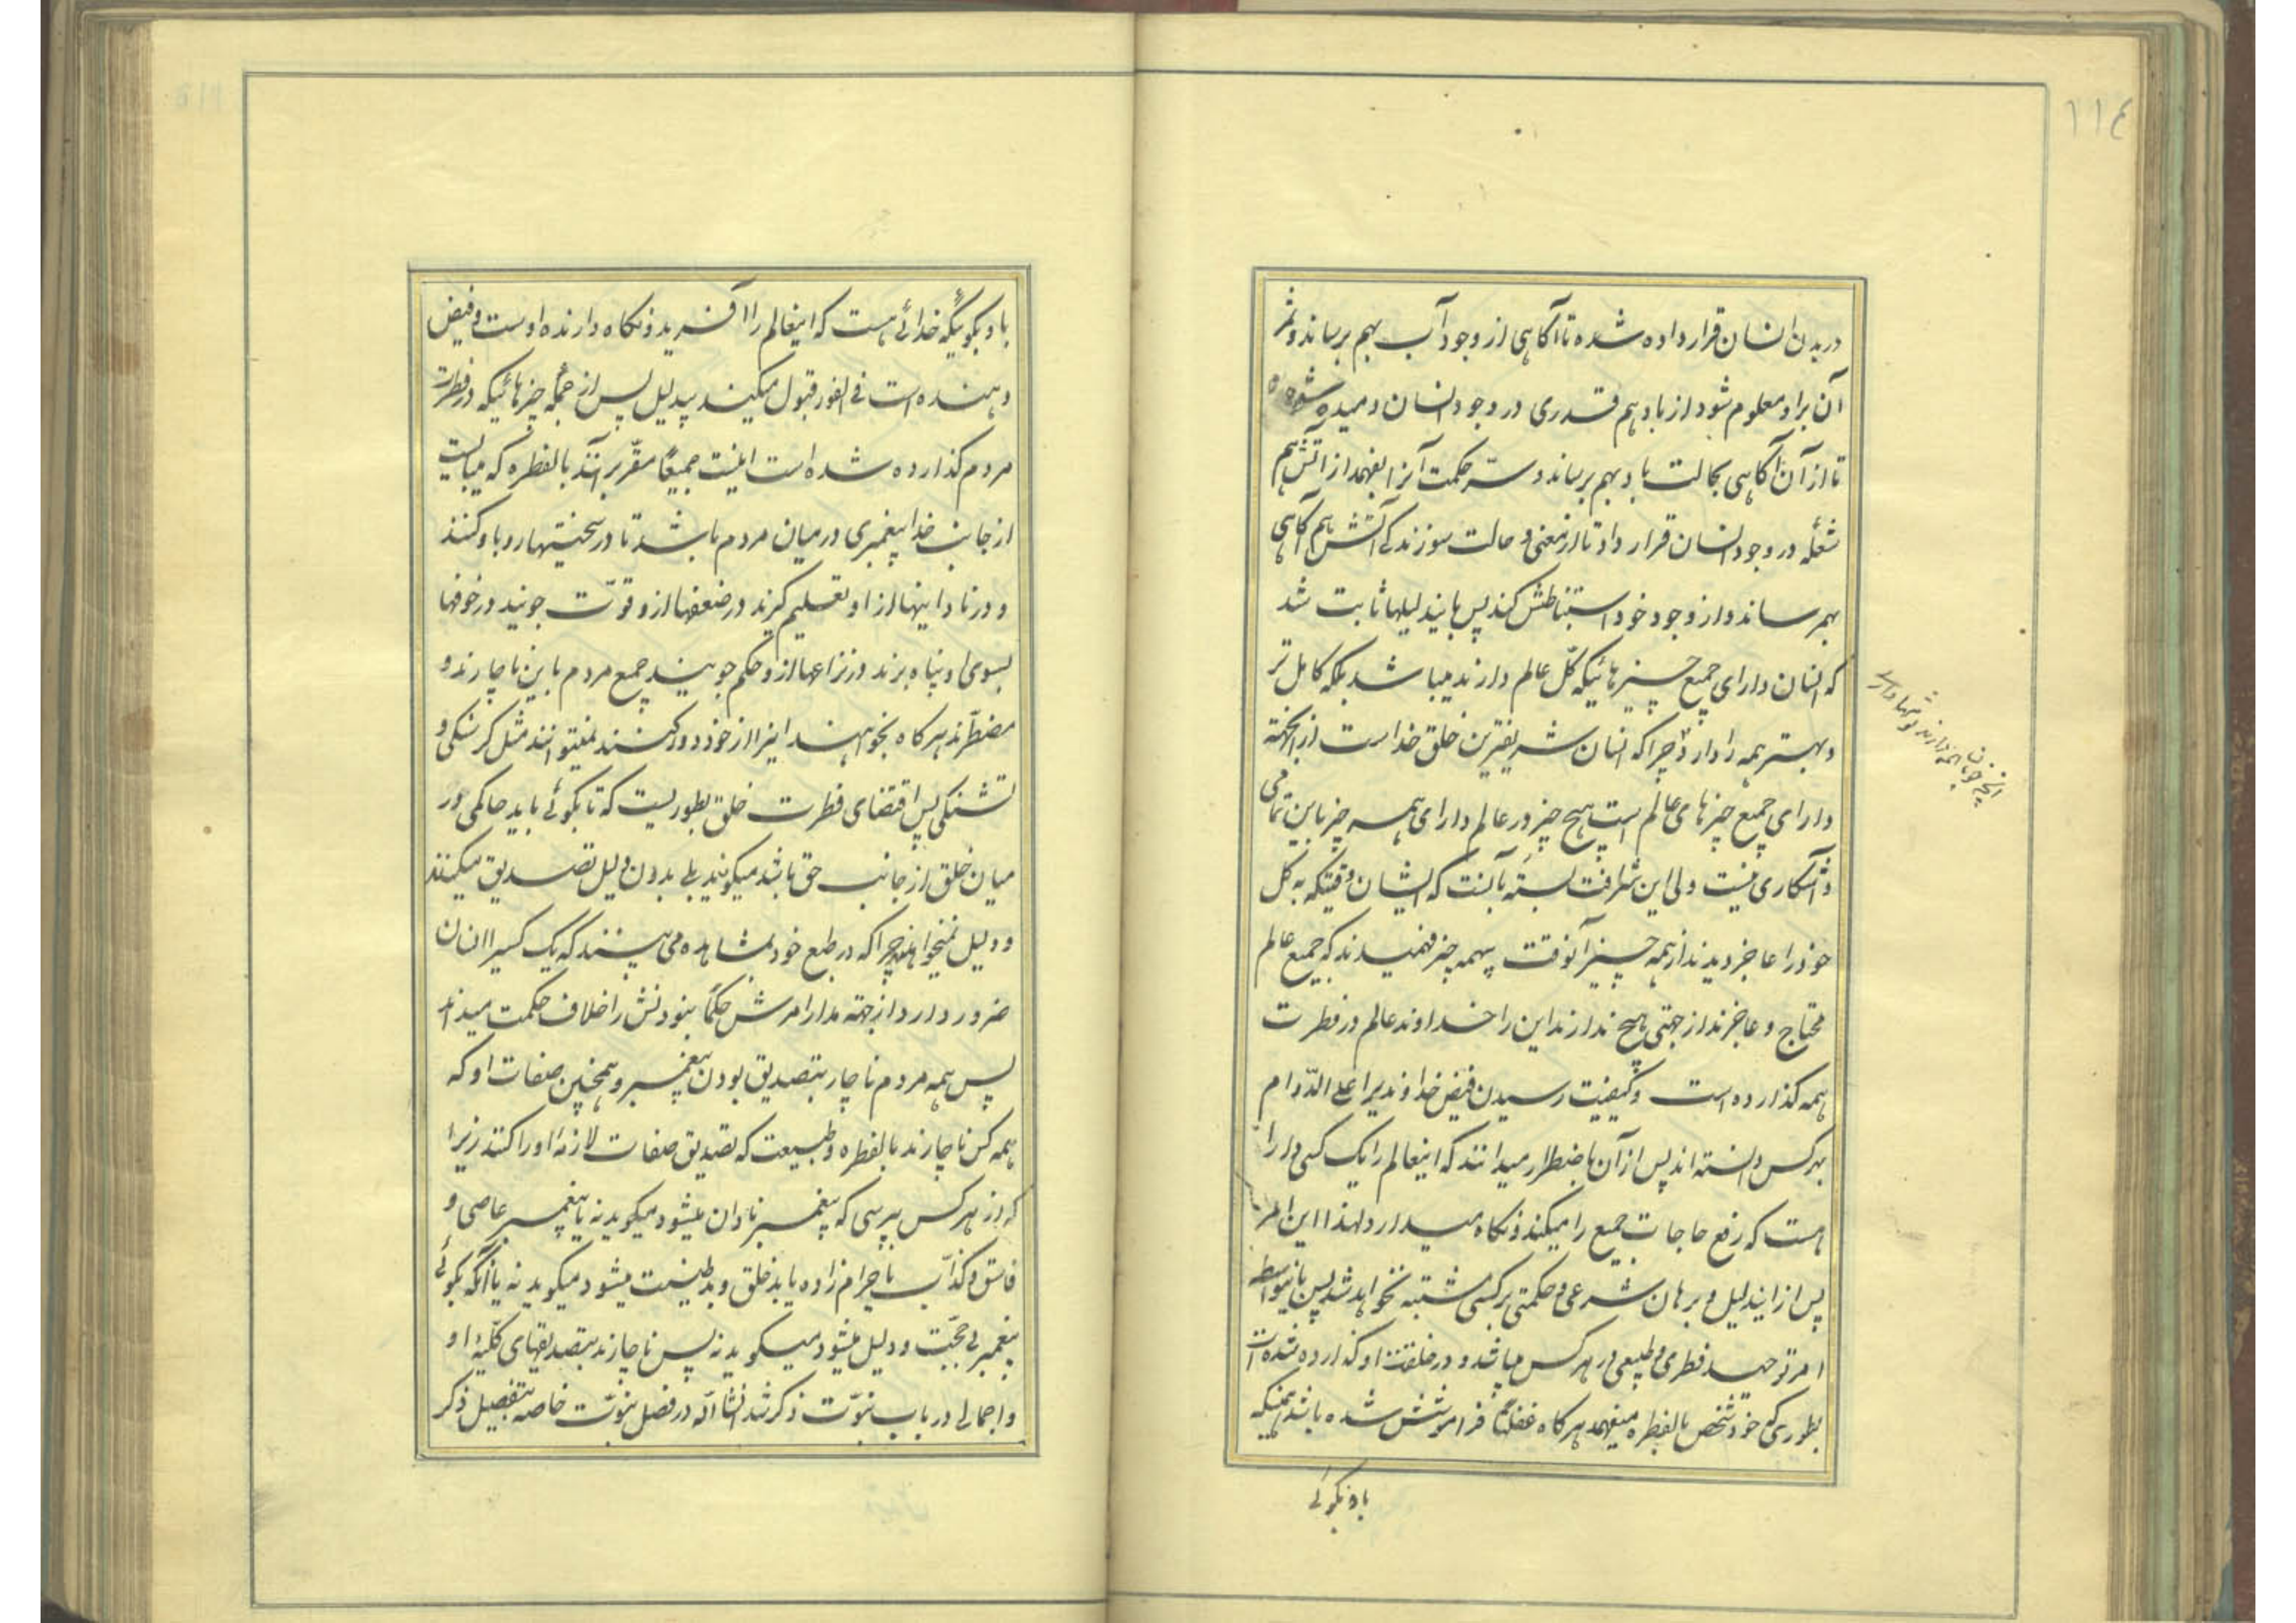 ١١٤
در بدن انسان قرار داده شده تا آکاهی از وجود آب بهم برساند و ثمر
آن بر او معلوم شود از باد هم قدری در وجود انسان دمیده شده
تا از آن آکاهی بحالت باد بهم برساند و سرّ حکمت آنرا بفهمد از آتش هم
شعله در وجود انسان قرار داد تا از معنی و حالت سوزندکی آتش هم آکاهی
بهم رساند و از وجود خود استنباطش کند پس باینهدلیلها ثابت شد
که انسان دارای جمیع چیزهائیکه کلّ عالم دارند میباشد بلکه کامل تر
و بهتر همه را دارد چرا که انسان شریفترین خلق خداست از اینجهة
دارای جمیع چیزهای عالم است هیچ چیز در عالم دارای همه چیز باین تمامی
و آشکاری نیست ولی این شرافت بسته بآنست که ایشان وقتیکه به کل
خود را عاجز دیدند از همه چیز آنوقت بهمه چیز فهمیدند که جمیع عالم
محتاج و عاجزند از جهتی هیچ ندارند این را خداوند عالم در فطرت
همه کذارده است و کیفیت رسیدن فیض خداوندیرا علی الدّوام
بهرکس دانسته اند پس از آن باضطرار میدانند که اینعالم را یک کسی دارا
هست که رفع حاجات جمیع را میکند و نکاه میدارد لهذا این امر
پس از ایندلیل و برهان شرعی و حکمتی بر کسی مشتبه نخواهد شد پس باینواسطه
امر توحید فطری و طبیعی در هر کس میباشد و در خلقت او کذارده شده است
بطوری که خود شخص بالفطره میفهمد هر کاه غفلتاً فراموشش شده باشد همینکه
باو بکوئی
آنچه خوبان همه دارند تو تنها داری
باو بکوئیکه خدائی هست که اینعالم را آفرید و نکاه دارنده اوست و فیض
دهنده است فی الفور قبول میکند بیدلیل پس از جمله چیزهائیکه در فطرت
مردم کذارده شده است اینست جمیعًا مقرّ بر آنند بالفطره که میبایست
از جانب خدا پیغمبری در میان مردم باشد تا در سختیها رو باو کنند
و در نادانیها از او تعلیم کیرند در ضعفها از و قوّت جویند در خوفها
بسوی او پناه برند در نزاعها از و حکم جویند جمیع مردم باین ناچارند و
مضطرّند هر کاه بخواهند اینرا از خود دور کنند نمیتوانند مثل کرسنکی و
تشنکی پس اقتضای فطرت خلق بطوریست که تا بکوئی باید حاکمی در
میان خلق از جانب حق باشد میکویند بلی بدون دلیل تصدیق میکنند
و دلیل نمیخواهند چرا که در طبع خود مشاهده می بینند که یک کسیرا انسان
ضرور دارد از جهة مدار امرش حکمًا نبودنش را خلاف حکمت میداند
پس همه مردم ناچار بتصدیق بودن پیغمبر و همچنین صفات او که
همه کس ناچارند بالفطره و طبیعت که تصدیق صفات لازمهٔ او را کنند زیرا
که از هر کس بپرسی که پیغمبر نادان میشود میکوید نه یا پیغمبر عاصی و
فاسق و کذّاب یا حرام زاده یا بد خلق و بد طینت میشود میکوید نه یا آنکه بکوئی
پیغمبر بی حجّت و دلیل میشود میکوید نه پس ناچارند بتصدیقهای کلّیهٔ او
و اجمالی در باب نبوّت ذکر شد انشاالله در فصل نبوّت خاصه بتفصیل ذکر